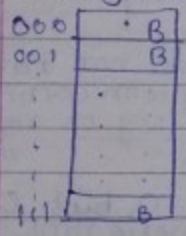 000 B
001 B
111 B